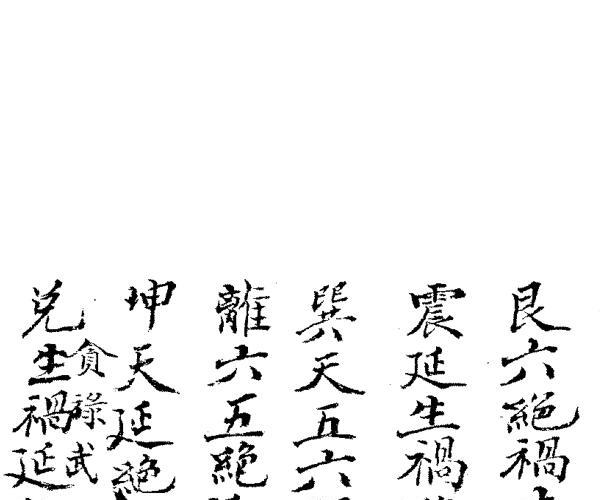 艮六絕禍
震延生禍
巽天五六
離六五絕
坤天延絕
貪祿武
兌生禍延